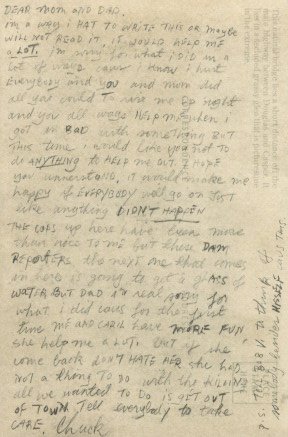 DEAR MOM AND DAD.
i'm a way i HAT TO WRITE THIS OR mayBe
WILL NOT READ IT, iT WOULD HELP ME
A LOT. i'm sorry for what i DiD in a
LOT of ways caus i know i hurt
EVErybody and you and mom did
all you could To rase me up right
and you all ways HELP me when i
got in BAD with something BUT
THis time i would Like you not to
do ANYTHING to HELP ME OUT. i HOPE
you understand, it would make me
happy if EVERYBODY would go on Just
Like anything DIDN'T HAPPEN
THE COPS up here have been more
than nice to me but these DAM
REPORTERS, the next one that comes
in here is going to get a glass of
WATER, BUT DAD i'm real sorry for
what i did caus for the first
time me AND CARIL have MORE FUN
she help me a LOT, but if she
come back DON'T HATE HER she had
not a thing TO DO with the KILLING
all we wanted TO DO is GET OUT
OF TOWN. Tell everybody to take
CARE. Chuck
P.S. TELL BOB V. to think of
somebody besides HIMSELF